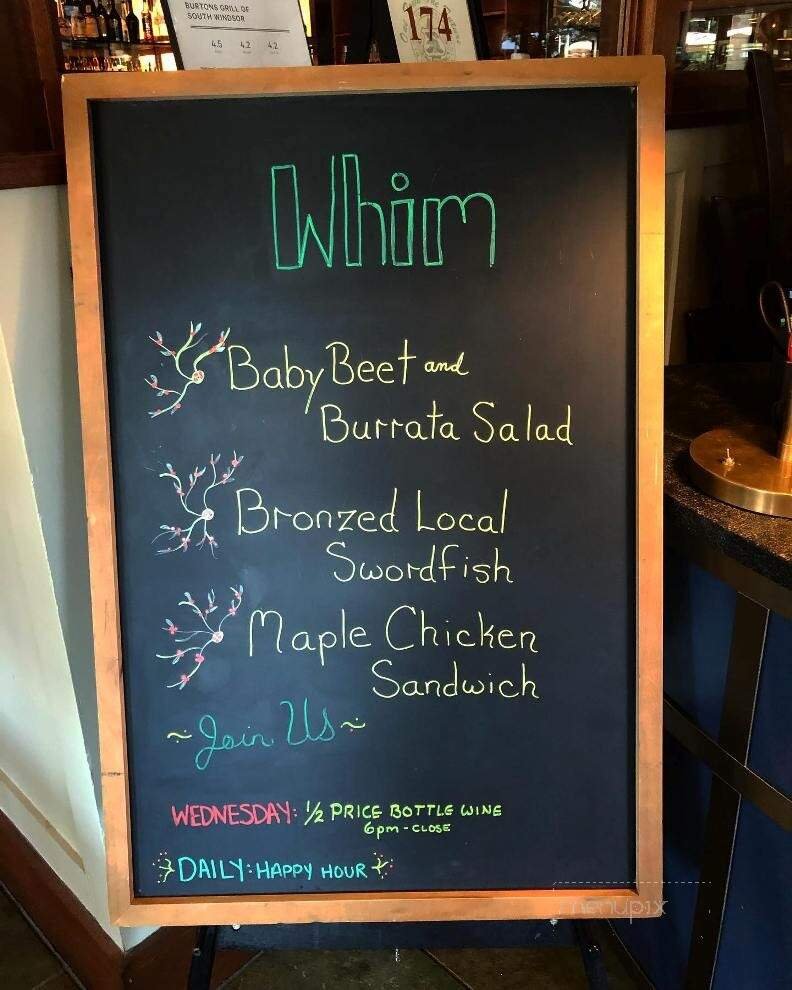 BURTONS GRILL OF
SOUTH WINDSOR
4.5 4.2 4.2
174
Whim
Baby Beet and
Burrata Salad
Bronzed Local
Swordfish
Maple Chicken
Sandwich
~Join Us~
WEDNESDAY: 1/2 PRICE BOTTLE WINE
6pm-CLOSE
DAILY: HAPPY HOUR
menupix